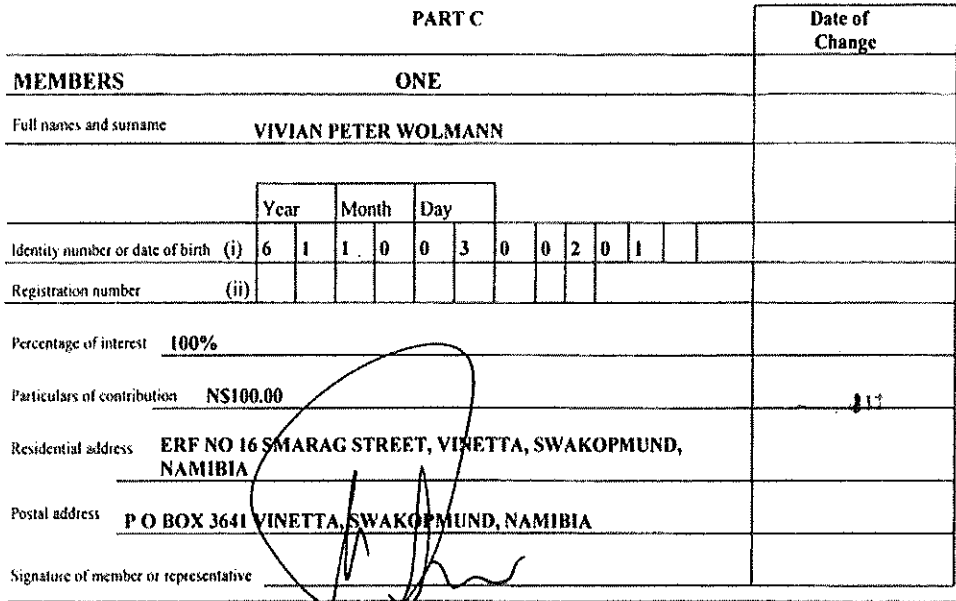 PART C
Date of
Change
MEMBERS ONE
Full names and surname VIVIAN PETER WOLMANN
Year Month Day
Identity number or date of birth (i) 6 1 1 0 0 3 0 0 2 0 1
Registration number (ii)
Percentage of interest 100%
Particulars of contribution N$100.00
Residential address ERF NO 16 SMARAG STREET, VINETTA, SWAKOPMUND,
NAMIBIA
Postal address P O BOX 3641 VINETTA, SWAKOPMUND, NAMIBIA
Signature of member or representative